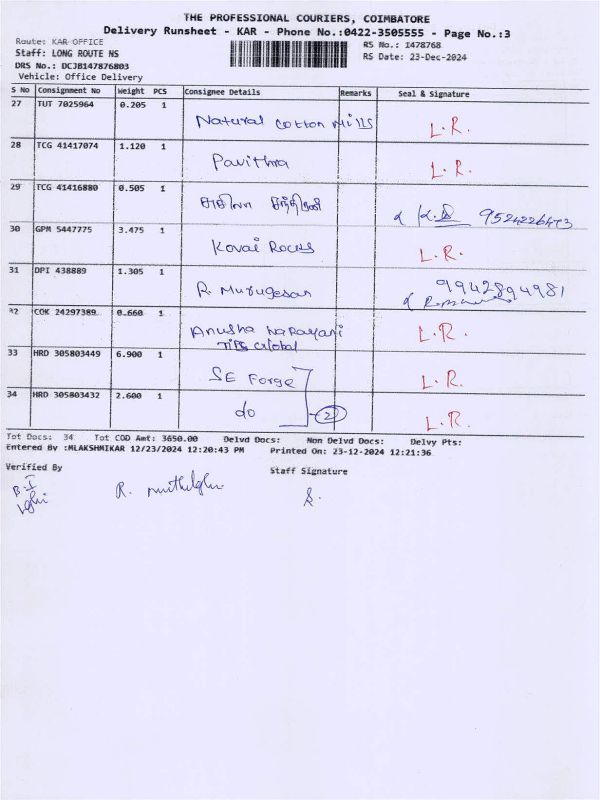 THE PROFESSIONAL COURIERS, COIMBATORE
Delivery Runsheet - KAR - Phone No.:0422-3505555 - Page No.:3
Route: KAR OFFICE
RS No.: I478768
Staff: LONG ROUTE NS
RS Date: 23-Dec-2024
DRS No.: DCJB147876803
Vehicle: Office Delivery
S No Consignment No Weight PCS Consignee Details Remarks Seal & Signature
27 TUT 7025964 0.205 1 Natural Cotton Mills L.R.
28 TCG 41417074 1.120 1 Pavithra L.R.
29 TCG 41416880 0.505 1 9524226473
30 GPM 5447775 3.475 1 Kovai Rocks L.R.
31 DPI 438889 1.305 1 R. Murugesan 9942894981
32 COK 24297389 0.660 1 Anusha Narayani L.R.
Tips Global
33 HRD 305803449 6.900 1 SE Forge L.R.
34 HRD 305803432 2.600 1 do 2 L.R.
Tot Docs: 34 Tot COD Amt: 3650.00 Delvd Docs: Non Delvd Docs: Delvy Pts:
Entered By :MLAKSHMIKAR 12/23/2024 12:20:43 PM Printed On: 23-12-2024 12:21:36
Verified By
Staff Signature